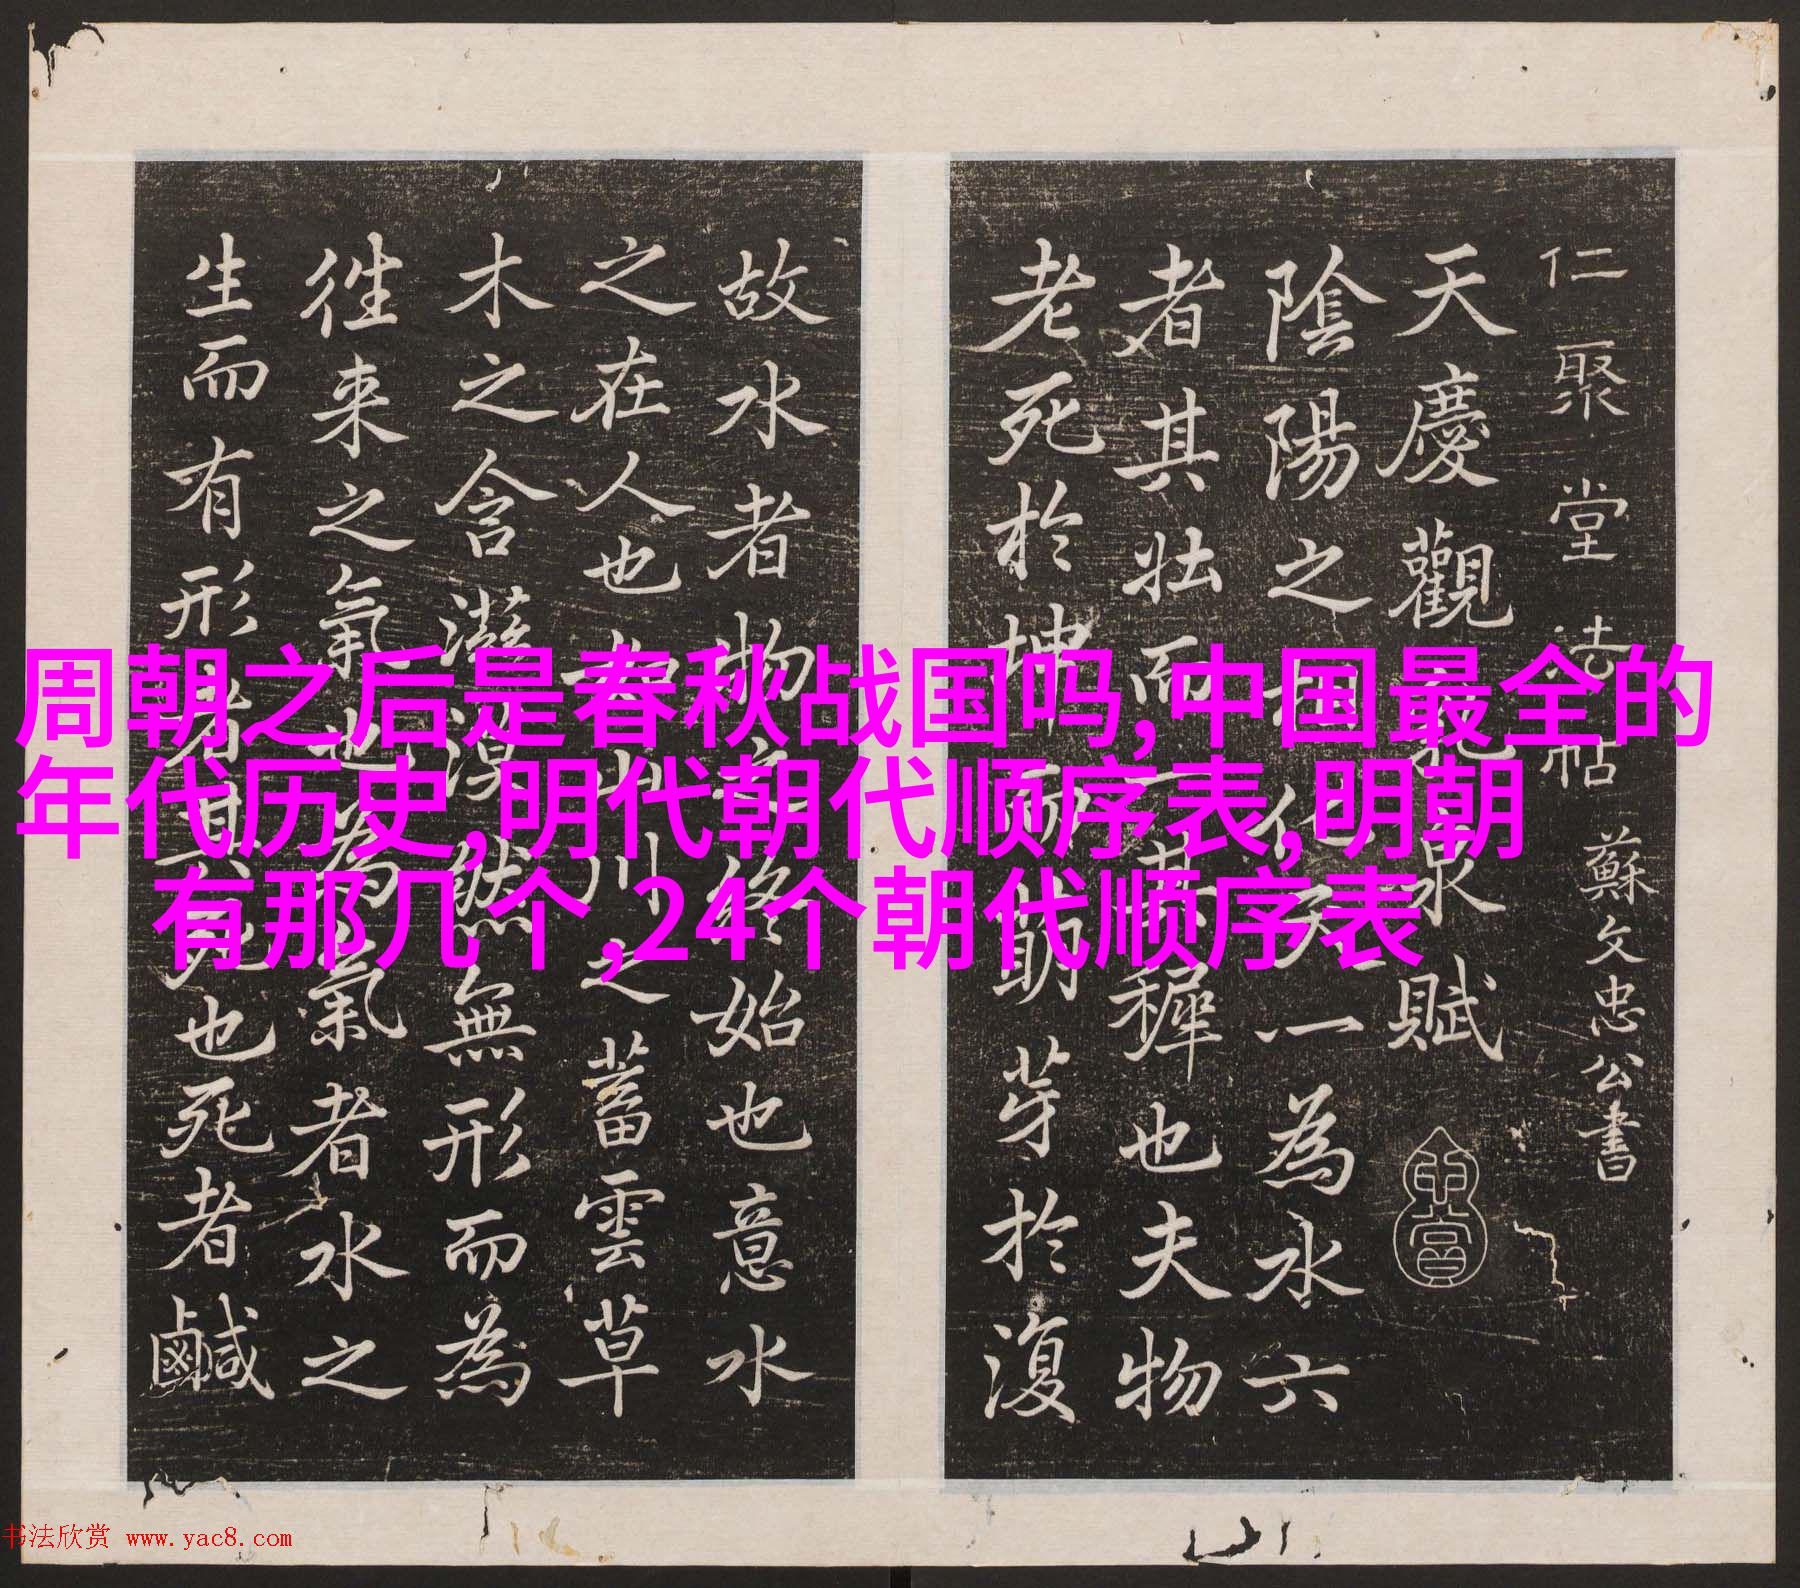 仁聚堂法帖 蘇文忠公書
天慶觀乳泉賦
陰陽之相化天一為水六
者其壯而一者其穉也夫物
老死於坤而萌芽於復
故水者物之終始也意水
之在人也如山川之蓄雲草
木之含滋漠然無形而為
往来之氣也為氣者水之
生而有形者其死也死者鹹
周朝之后是春秋战国吗,中国最全的
年代历史,明代朝代顺序表,明朝
有那几个,24个朝代顺序表
书法欣赏 www.yac8.com